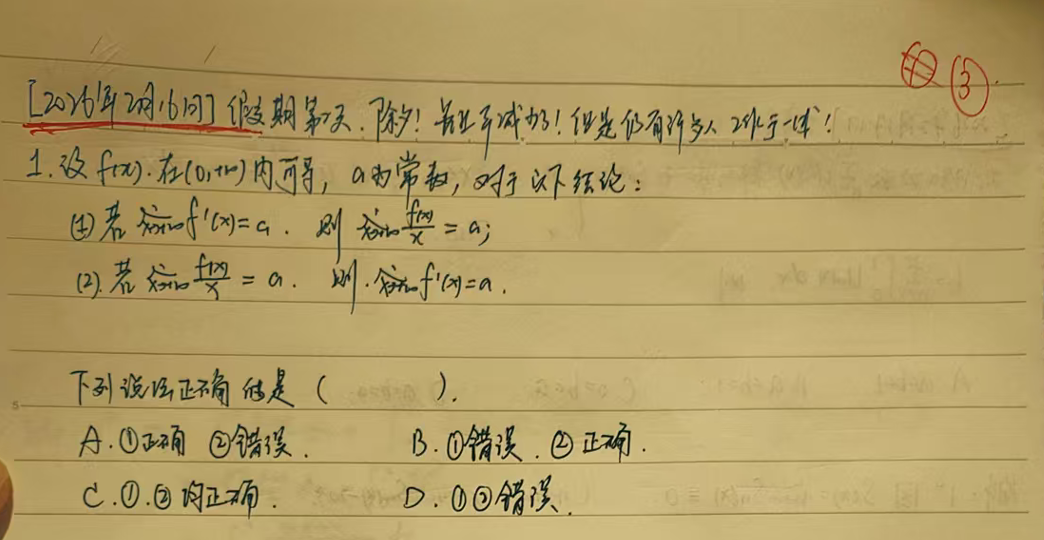 ③
[2026年2月16日] 假期第天. 除夕! 但是仍有许多人工作于一线!
1. 设 f(x). 在(0,+∞)内可导, a为常数, 对于以下结论:
(1) 若 lim x→+∞ f'(x)=a. 则 lim x→+∞ f(x)/x = a;
(2). 若 lim x→+∞ f(x)/x = a. 则. lim x→+∞ f'(x)=a.
下列说法正确的是 ( ).
A. ①正确 ②错误. B. ①错误. ②正确.
C. ①.②均正确. D. ①②错误.